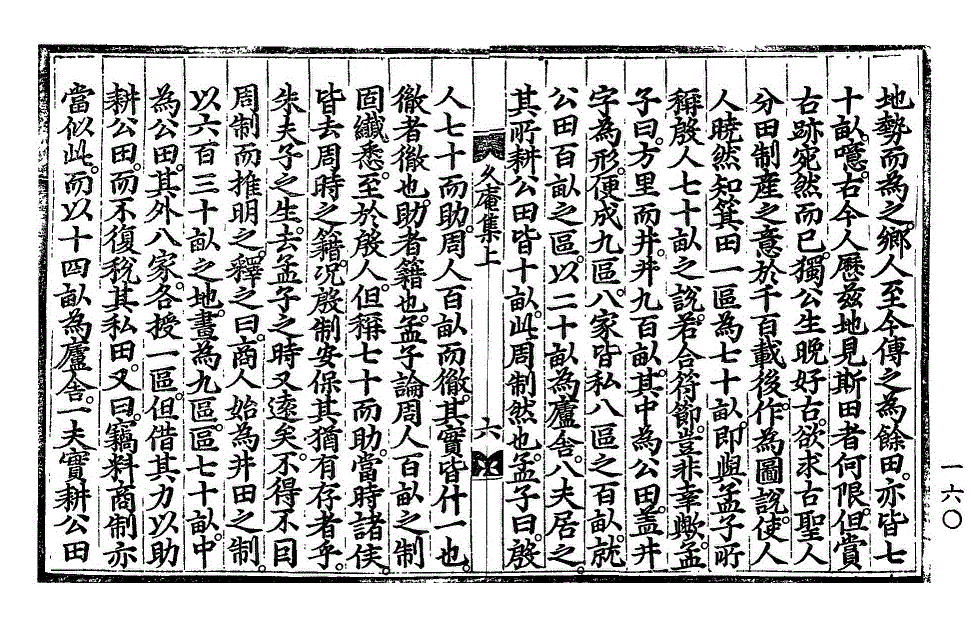 地勢而為之鄉人至今傳之為餘田亦皆七
十畝噫古今人歷茲地見斯田者何限但賞
古跡宛然而已獨公生晚好古欲求古聖人
分田制產之意於千百載後作為圖說使人
人曉然知箕田一區為七十畝即與孟子所
稱殷人七十畝之說若合符節豈非幸歟孟
子曰方里而井井九百畝其中為公田盖井
字為形便成九區八家皆私八區之百畝就
公田百畝之區以二十畝為廬舎八夫居之
其所耕公田皆十畝此周制然也孟子曰殷
久庵集上
六
人七十而助周人百畝而徹其實皆什一也
徹者徹也助者籍也孟子論周人百畝之制
固纎悉至於殷人但稱七十而助當時諸侯
皆去周時之籍况殷制安保其猶有存者乎
朱夫子之生去孟子之時又遠矣不得不因
周制而推明之釋之曰商人始為井田之制
以六百三十畝之地畫為九區區七十畝中
為公田其外八家各授一區但借其力以助
耕公田而不復稅其私田又曰竊料商制亦
當似此而以十四畝為廬舎一夫實耕公田
一六〇